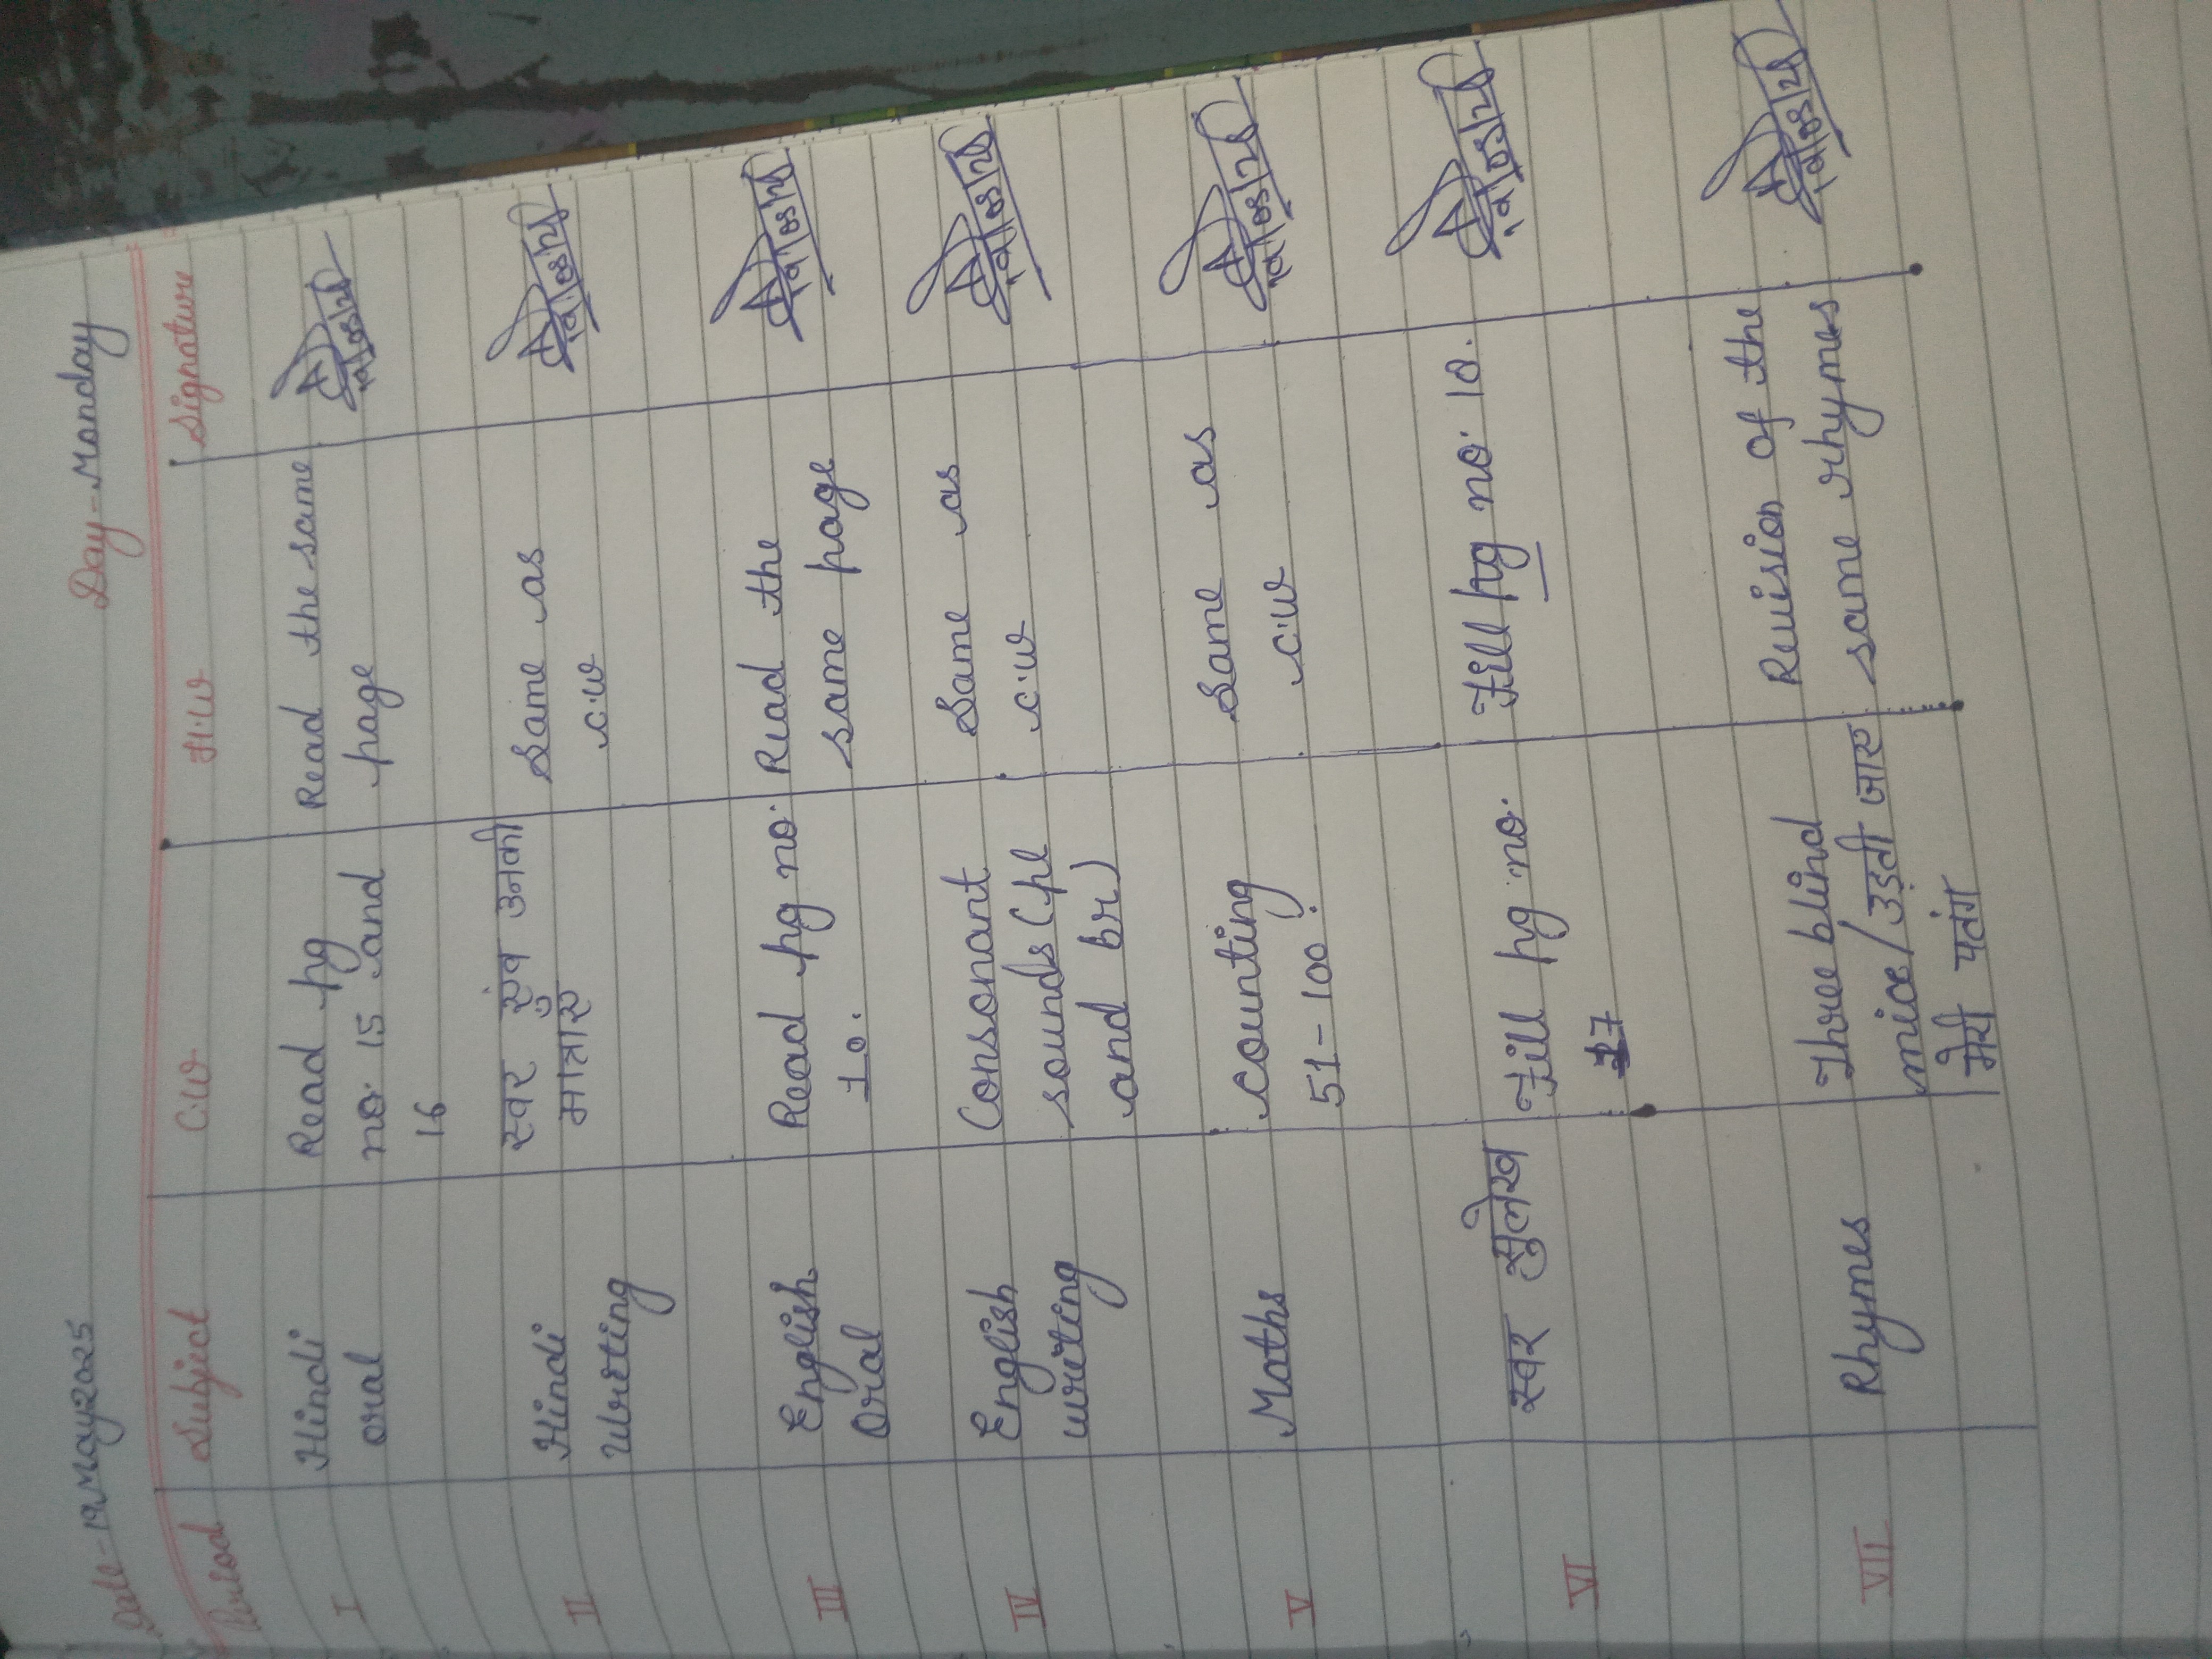 Date-19May2025 Day-Monday
Period Subject C.W H.W Signature
I Hindi Read pg Read the same
oral no. 15 and page
16
II Hindi स्वर एंव उनकी Same as
Writing मात्राएं C.W
III English Read pg no. Read the
Oral 10. same page
IV English Consonant Same as
writing sounds (pl C.W
and br)
V Maths counting Same as
51-100. C.W
VI स्वर सुलेख Fill pg no. Fill pg no. 10.
27
VII Rhymes Three blind Revision of the
mice/उड़ती जाए same rhymes
मेरी पतंग